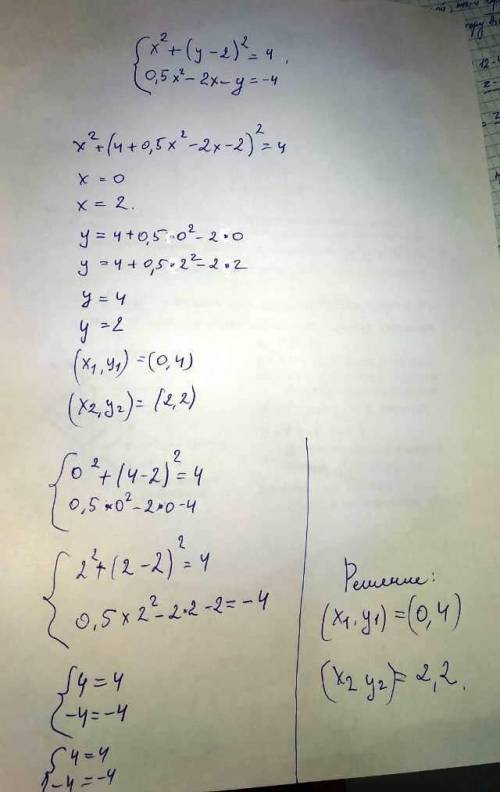 {x² + (y - 2)² = 4.
0,5x² - 2x - y = -4
x² + (4 + 0,5x² - 2x - 2)² = 4
x = 0
x = 2.
y = 4 + 0,5·0² - 2·0
y = 4 + 0,5·2² - 2·2
y = 4
y = 2
(x₁, y₁) = (0,4)
(x₂, y₂) = (2,2)
{0² + (4 - 2)² = 4
0,5×0² - 2×0 - 4
{2² + (2 - 2)² = 4
0,5×2² - 2·2 - 2 = -4
{4 = 4
-4 = -4
{4 = 4
-4 = -4
Решение:
(x₁, y₁) = (0,4)
(x₂ y₂) = 2,2.